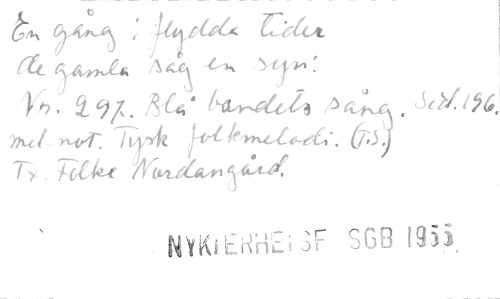 En gång i flydda tider
de gamla såg en syn!
Nr. 297. Blå bandets sång. Sid. 196.
med not. Tysk folkmelodi. (T.S.)
Tx. Folke Nordangård.
NYKTERHETSF SGB 1955